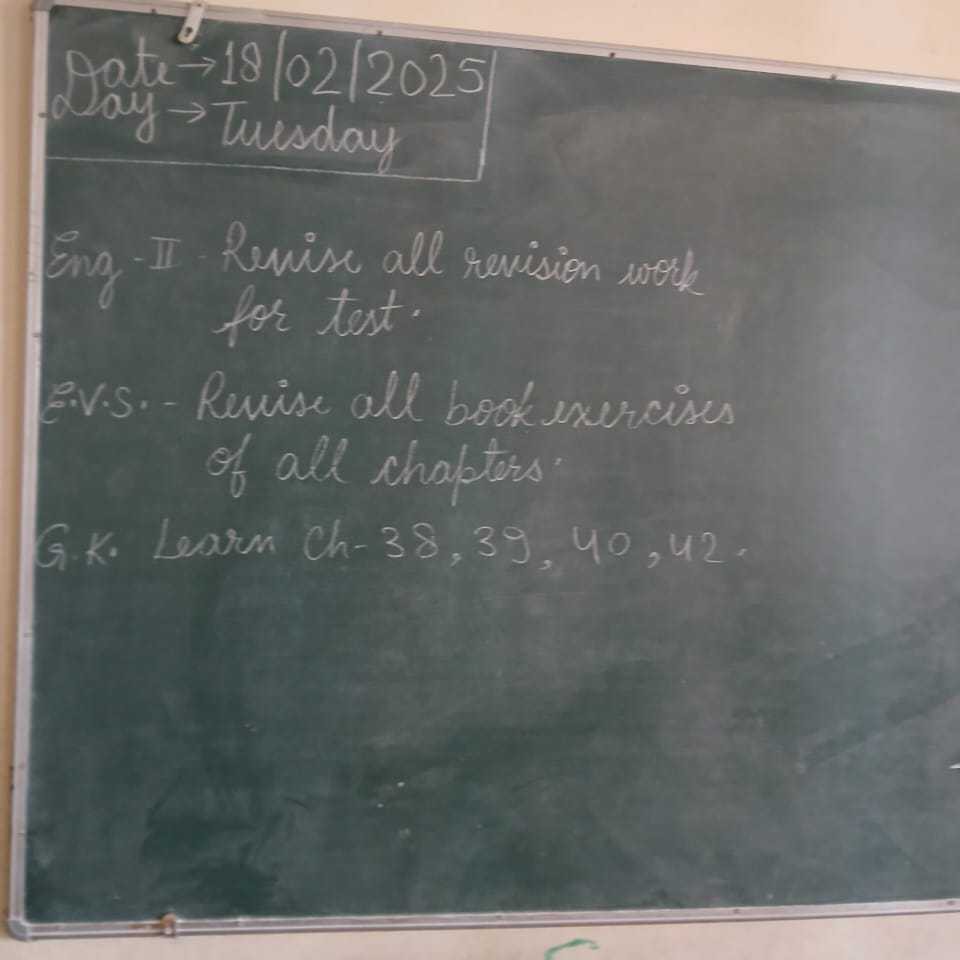 Date → 18/02/2025
Day → Tuesday
Eng - II - Revise all revision work
for test.
E.V.S. - Revise all book exercises
of all chapters.
G.K. Learn Ch- 38, 39, 40, 42.